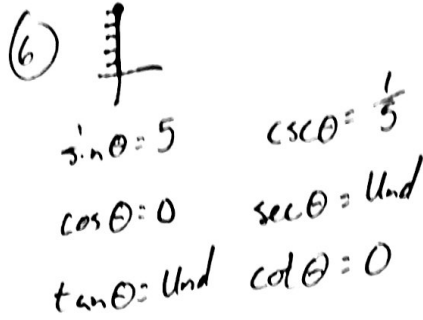 6
sinθ = 5 cscθ = 1/5
cosθ = 0 secθ = Und
tanθ = Und cotθ = 0